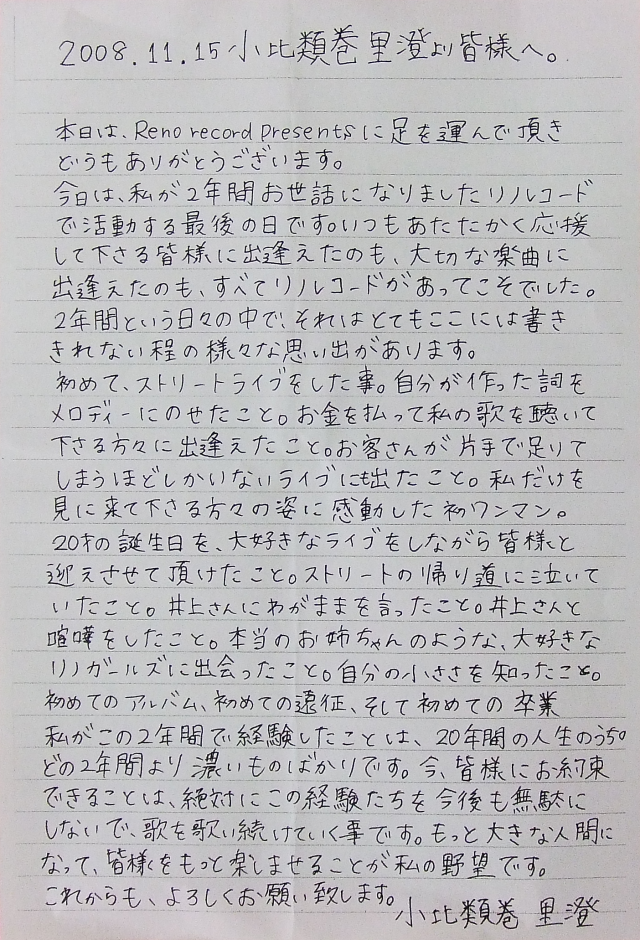 2008.11.15 小比類巻 里澄より皆様へ。
本日は、Reno record presentsに足を運んで頂き
どうもありがとうございます。
今日は、私が2年間お世話になりましたリノレコード
で活動する最後の日です。いつもあたたかく応援
して下さる皆様に出逢えたのも、大切な楽曲に
出逢えたのも、すべてリノレコードがあってこそでした。
2年間という日々の中で、それはとてもここには書き
きれない程の様々な思い出があります。
初めて、ストリートライブをした事。自分が作った詞を
メロディーにのせたこと。お金を払って私の歌を聴いて
下さる方々に出逢えたこと。お客さんが片手で足りて
しまうほどしかいないライブにも出たこと。私だけを
見に来て下さる方々の姿に感動した初ワンマン。
20才の誕生日を、大好きなライブをしながら皆様と
迎えさせて頂けたこと。ストリートの帰り道に泣いて
いたこと。井上さんにわがままを言ったこと。井上さんと
喧嘩をしたこと。本当のお姉ちゃんのような、大好きな
リノガールズに出会ったこと。自分の小ささを知ったこと。
初めてのアルバム、初めての遠征、そして初めての卒業
私がこの2年間で経験したことは、20年間の人生のうち
どの2年間より濃いものばかりです。今、皆様にお約束
できることは、絶対にこの経験たちを今後も無駄に
しないで、歌を歌い続けていく事です。もっと大きな人間に
なって、皆様をもっと楽しませることが私の野望です。
これからも、よろしくお願い致します。
小比類巻 里澄